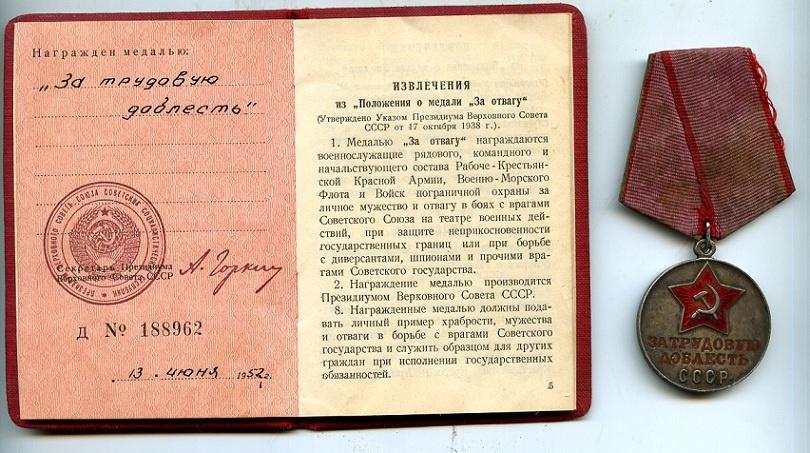 Награжден медалью:
„За трудовую
доблесть"
Секретарь Президиума
Верховного Совета СССР
А. Горкин
Д № 188962
13 . июня 1952 г.
1
ИЗВЛЕЧЕНИЯ
из „Положения о медали „За отвагу"
(Утверждено Указом Президиума Верховного Совета
СССР от 17 октября 1938 г.).
1. Медалью „За отвагу" награждаются
военнослужащие рядового, командного и
начальствующего состава Рабоче-Крестьян-
ской Красной Армии, Военно-Морского
Флота и Войск пограничной охраны за
личное мужество и отвагу в боях с врагами
Советского Союза на театре военных дей-
ствий, при защите неприкосновенности
государственных границ или при борьбе
с диверсантами, шпионами и прочими вра-
гами Советского государства.
2. Награждение медалью производится
Президиумом Верховного Совета СССР.
8. Награжденные медалью должны пода-
вать личный пример храбрости, мужества
и отваги в борьбе с врагами Советского
государства и служить образцом для других
граждан при исполнении государственных
обязанностей.
5
ЗА ТРУДОВУЮ
ДОБЛЕСТЬ
СССР